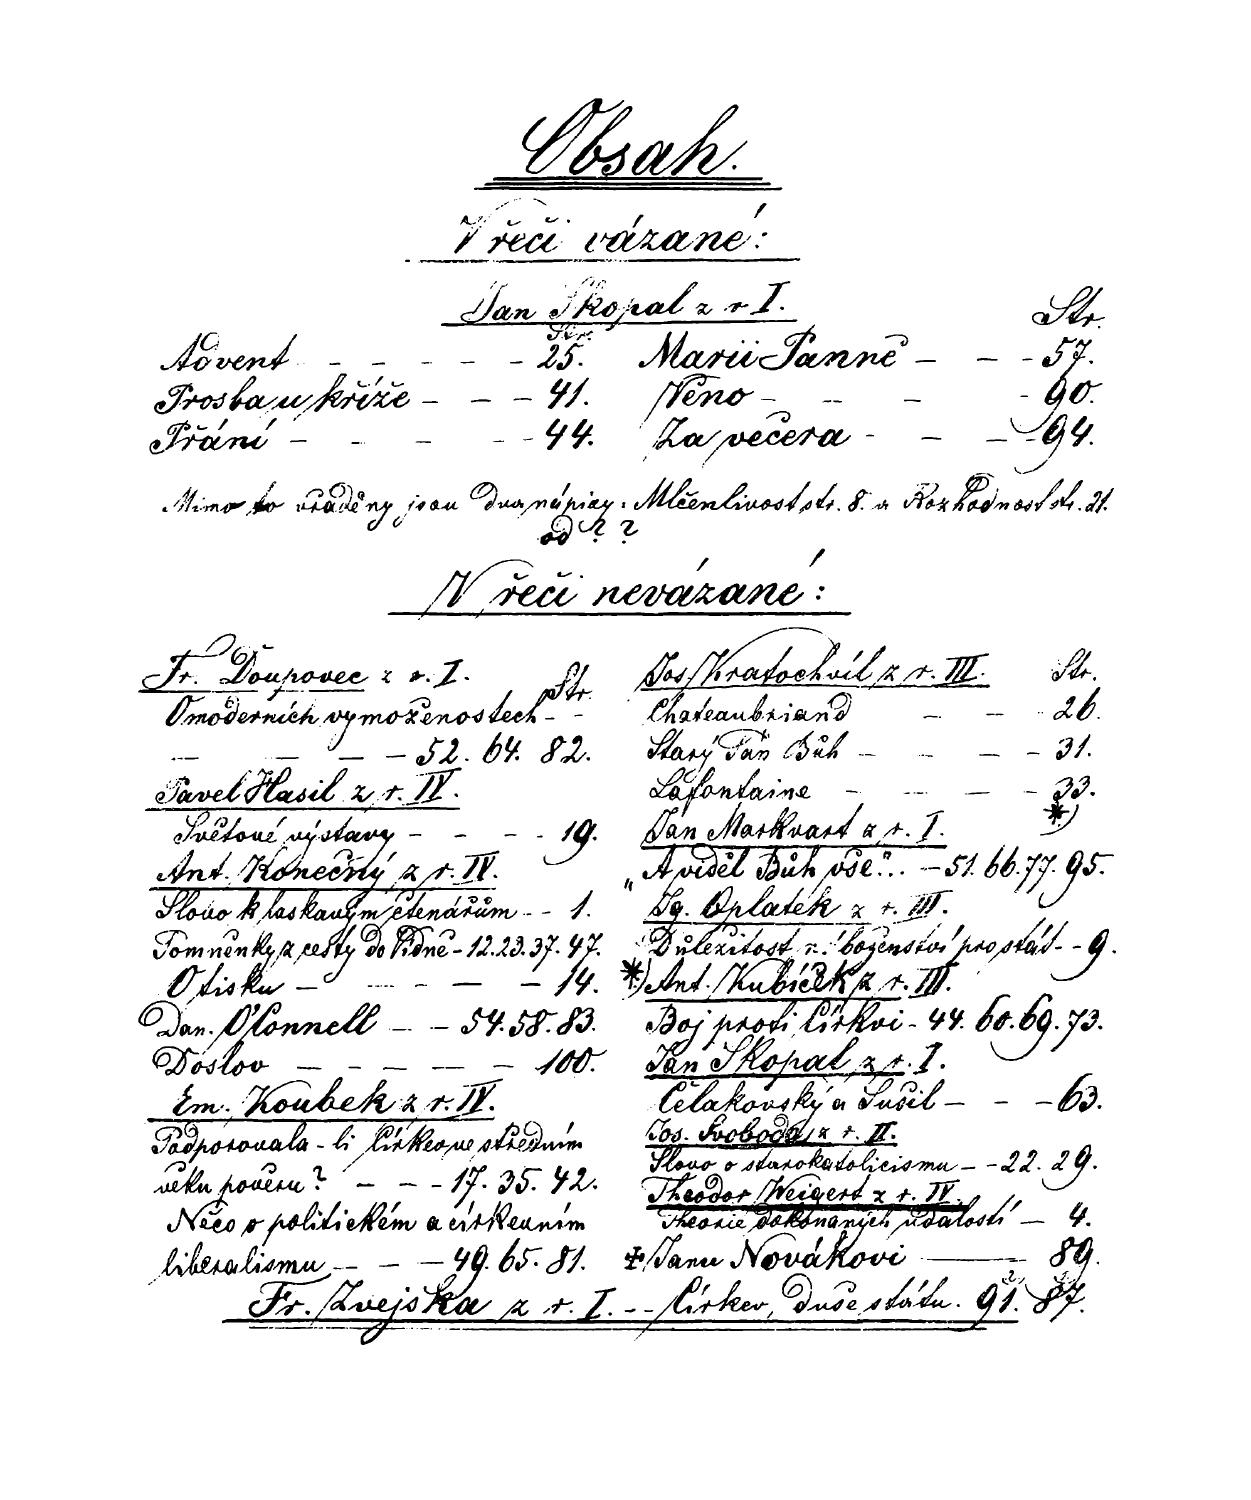 Obsah.
V řeči vázané:
Jan Skopal z r I.
Str.
Str.
Advent - - - - - 25.
Prosba u kříže - - - 41.
Přání - - - - - 44.
Marii Panně - - - 57.
Něno - - - - 90.
Za večera - - - - 94.
Mimo to vřaděny jsou dva nápisy: Mlčenlivost str. 8. a Rozhodnost str. 21.
od ? ?
V řeči nevázané:
Fr. Doupovec z r. I.
Str.
O moderních vymoženostech - -
- - - - 52. 64. 82.
Pavel Hasil z r. IV.
Světové výstavy - - - - 19.
Ant. Konečný z r. IV.
Slovo k laskavým čtenářům - - 1.
Pomněnky z cesty do Vídně - 12.23.37.47.
O tisku - - - - - 14.
Dan. O'Connell - - 54.58.83.
Doslov - - - - - 100.
Em. Koubek z r. IV.
Podporovala-li Církev ve středním
věku pověru? - - - 17. 35. 42.
Něco o politickém a církevním
liberalismu - - - 49. 65. 81.
Jos. Kratochvíl z r. III.
Str.
Chateaubriand - - - 26.
Starý Pán Bůh - - - - 31.
Lafontaine - - - - 33.
*)
Jan Markvart z r. I.
„A viděl Bůh vše“.. - 51. 66. 77. 95.
Ig. Oplatek z r. III.
Důležitost n. boženství pro stát - - 9.
*) Ant. Kubíček z r. III.
Boj proti Církvi - 44. 60. 69. 73.
Jan Skopal z r. I.
Čelakovský a Sušil - - - 63.
Jos. Svoboda z r. II.
Slovo o starokatolicismu - - 22. 29.
Theodor Weigert z r. IV.
Theorie dokonaných událostí - 4.
✝ Janu Novákovi — 89.
Fr. Zvejška z r. I. - - Církev, duše státu. 91. 87.